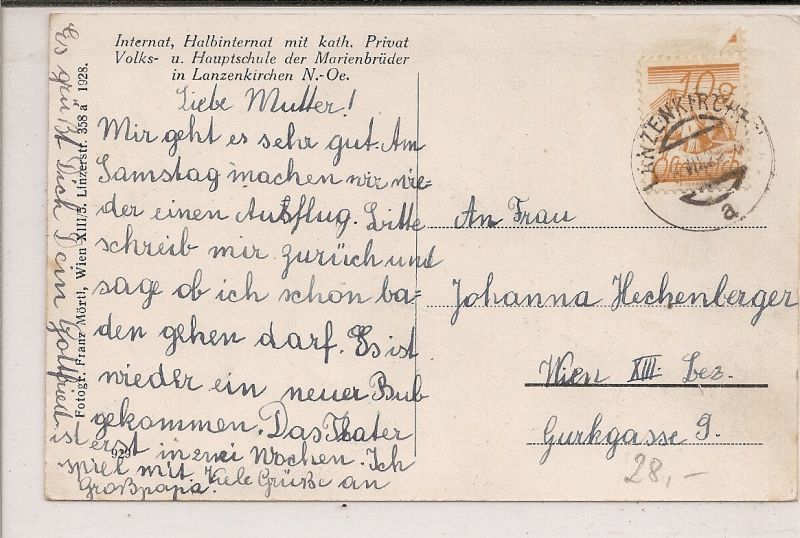 Internat, Halbinternat mit kath. Privat
Volks- u. Hauptschule der Marienbrüder
in Lanzenkirchen N.-Oe.
Liebe Mutter!
Mir geht es sehr gut. Am
Samstag machen wir wie-
der einen Ausflug. Bitte
schreib mir zurück und
sage ob ich schon ba-
den gehen darf. Es ist
wieder ein neuer Bub
gekommen. Das Theater
ist erst in zwei Wochen. Ich
spiel mit. Viele Grüße an
Großpapa.
Es grüßt Dich Dein Gottfried
Fotogr. Franz Mörtl, Wien XIII/5, Linzerstr. 358 a 1928.
929
10g
Österreich
LANZENKIRCHEN
a
An Frau
Johanna Hechenberger
Wien XIII. Bez.
Gurkgasse 9.
28,-